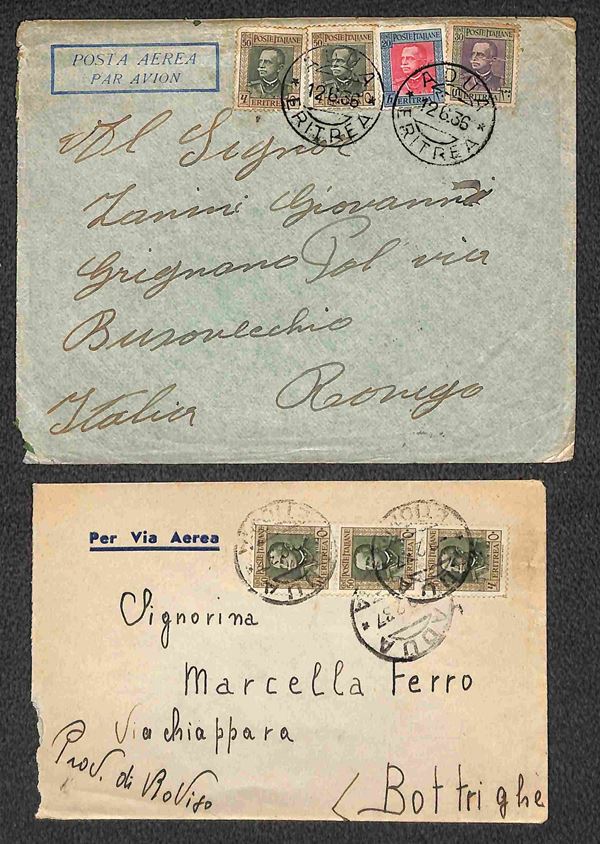 POSTA AEREA
PAR AVION
50 POSTE ITALIANE ERITREA
50 POSTE ITALIANE
20 POSTE ITALIANE ERITREA
POSTE ITALIANE
ADUA
12.6.36
ERITREA
ADUA
12.6.36
ERITREA
Al Signor
Zanini Giovanni
Grignano Pol via
Busovecchio
Rovigo
Italia
Per Via Aerea
50 POSTE ITALIANE ERITREA
POSTE ITALIANE ERITREA
ERITREA
ADUA
Signorina
Marcella Ferro
Via chiappara
Prov. di Rovigo
Bottrighe